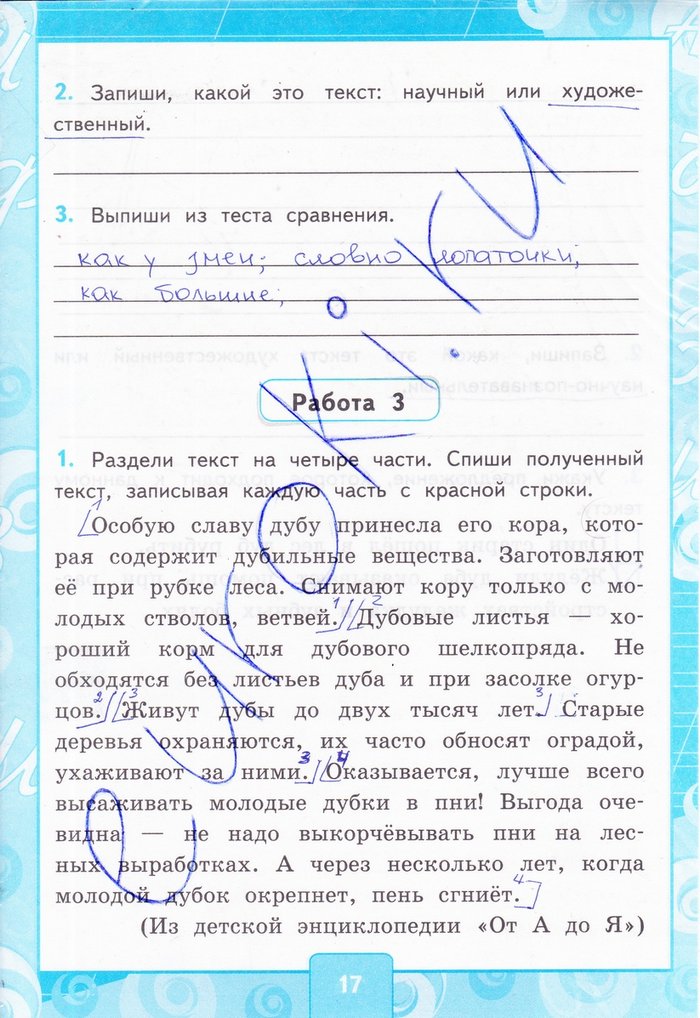 2. Запиши, какой это текст: научный или художе-
ственный.
3. Выпиши из теста сравнения.
как у змеи; словно лопаточки,
как большие;
Работа 3
1. Раздели текст на четыре части. Спиши полученный
текст, записывая каждую часть с красной строки.
1
Особую славу дубу принесла его кора, кото-
рая содержит дубильные вещества. Заготовляют
её при рубке леса. Снимают кору только с мо-
1 2
лодых стволов, ветвей. Дубовые листья — хо-
роший корм для дубового шелкопряда. Не
обходятся без листьев дуба и при засолке огур-
2 3 3
цов. Живут дубы до двух тысяч лет. Старые
деревья охраняются, их часто обносят оградой,
3 4
ухаживают за ними. Оказывается, лучше всего
высаживать молодые дубки в пни! Выгода оче-
видна — не надо выкорчёвывать пни на лес-
ных выработках. А через несколько лет, когда
4
молодой дубок окрепнет, пень сгниёт.
(Из детской энциклопедии «От А до Я»)
17